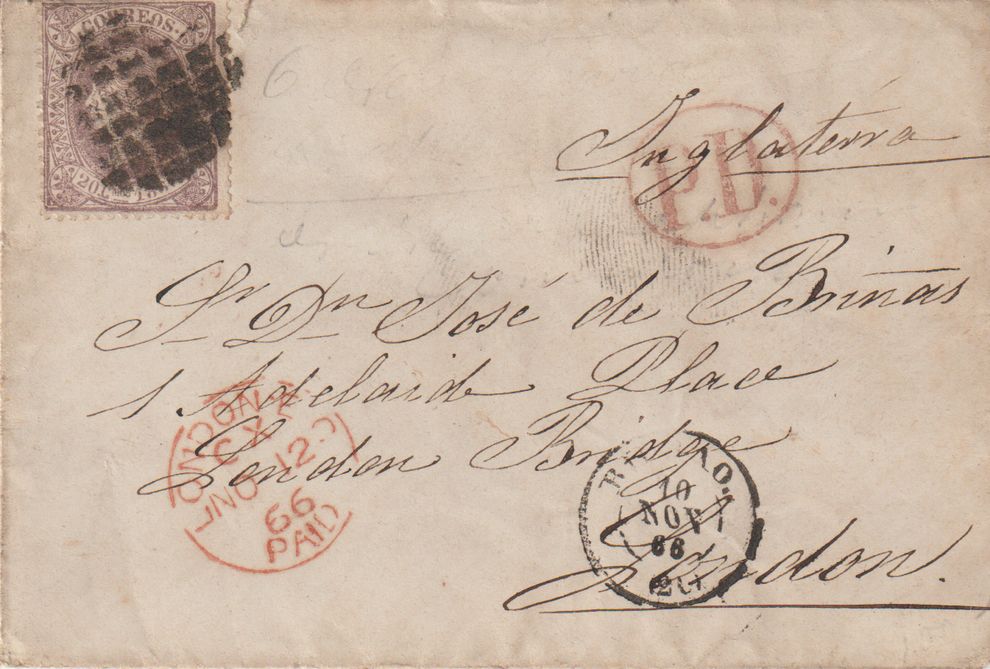 CORREOS
Inglaterra
P.D.
Sr Dn José de Briñas
1. Adelaide Place
London Bridge
London.
LONDON E.C
CX
NO 12
66
PAID
10
NOV
66